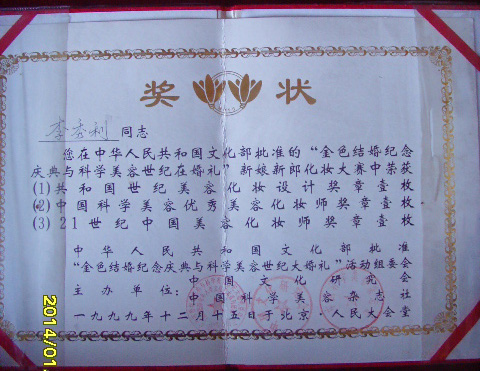 奖 状
李秀利 同志
您在中华人民共和国文化部批准的“金色结婚纪念
庆典与科学美容世纪在婚礼”新娘新郎化妆大赛中荣获
(1)共和国世纪美容化妆设计奖章壹枚
(2)中国科学美容优秀美容化妆师奖章壹枚
(3)21世纪中国美容化妆师奖章壹枚
中华人民共和国文化部批准
“金色结婚纪念庆典与科学美容世纪大婚礼”活动组委会
主办单位:
中国文化研究会
中国科学美容杂志社
一九九九年十二月十五日于北京·人民大会堂
2014/01